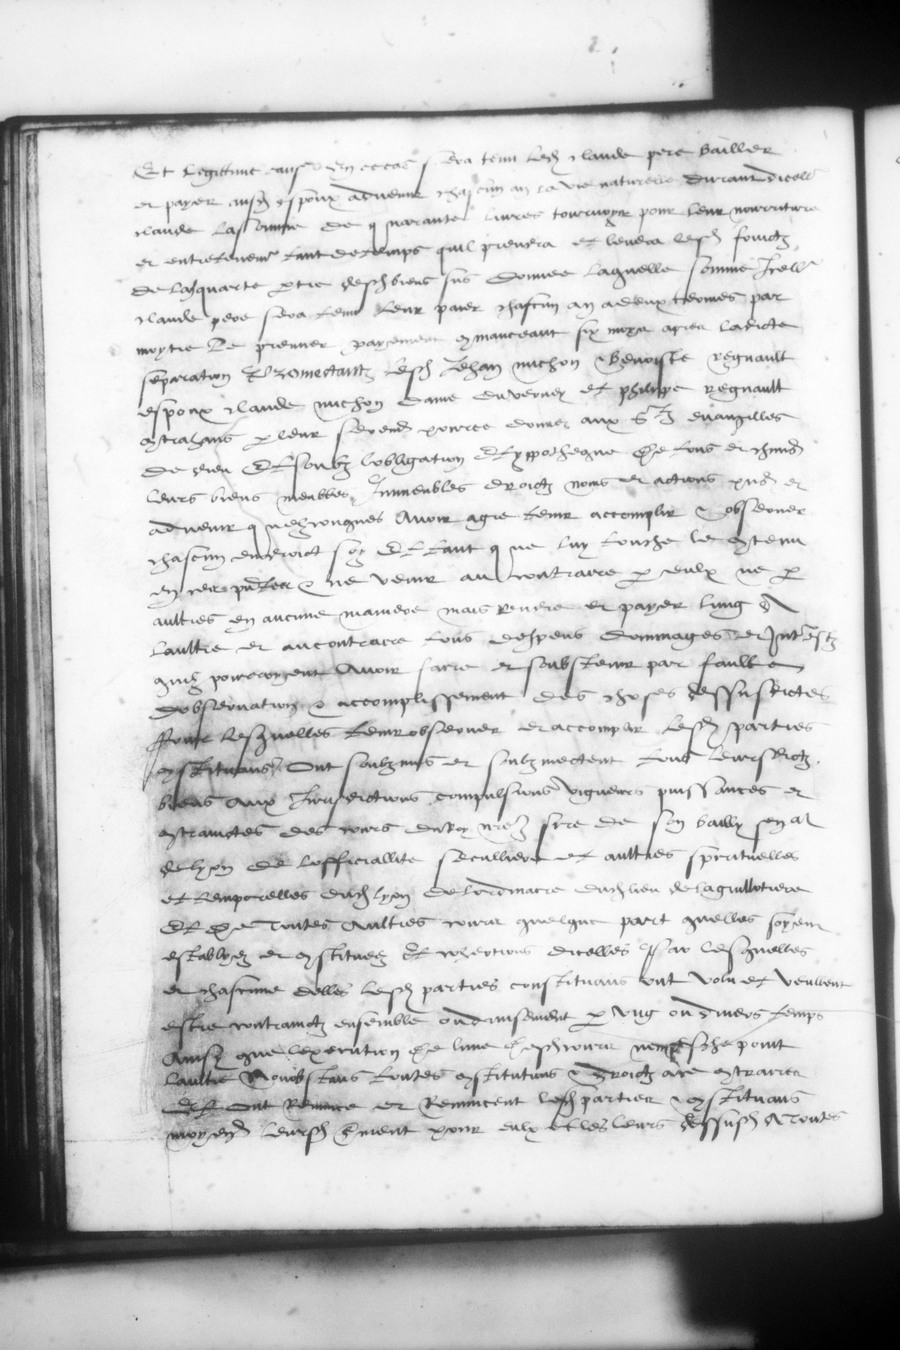 Et legittime cause en ce cas sera tenu led claude pere bailler
et payer ausd espoux advenir chascun an sa vie naturelle durant dicelluy
claude la somme de quarante livres tournoys pour leur nourriture
et entretenement tant de temps quil prendra et levera lesd fruictz
de lad quarte partie desd biens sus donnee laquelle somme Icelluy
claude pere sera tenu leur paier chascun an a deux termes par
moytie Le premier payement commanceant six moys apres ladicte
separation Promectantz lesd Jehan michon Benoiste regnault
espoux claude michon dame du verney et philippe regnault
contrahans par leur serement pource donnez aux Stz evangilles
de dieu Et soubz lobligation et ypothecque de tous et chascuns
leurs biens meubles Immeubles droictz noms et actions presens et
advenir quelzconques Avoir agre tenir accomplir & observer
chascun endroict soy Et tant que luy touche le contenu
en ces presentes & ne venir au contraire par eulx ne par
aultres en aucune maniere mais Rendre et payer lung a
laultre et au contraire tous despens dommages et Interestz
quilz pourroyent Avoir faire et soubstenir par faulte
dobservation & accomplissement des choses dessusdictes
Pour lesquelles tenir observer et accomplir lesd parties
constituans Ont soubzmis et soubzmectent tous leursdictz
biens aux Jurisdictions compulsions vigueurs puissances et
contrainctes des cours du Roy nre sire de son bailly senal
de lyon de lofficiallite seculliere et aultres sprituelles
et temporelles dud lyon de lordinaire dud lieu de la guillotiere
Et de toutes Aultres cours quelque part quelles soyent
establyes et constituees Et cohertions dicelles Par lesquelles
et chascune delles lesd parties constituans ont volu et veullent
estre contrainctz ensemble ou divisement par ung ou divers temps
Ainsy que lexecution de lune desd cours nempesche point
laultre Nonobstans toutes constitutions & droictz a ce contraires
Et Ont Renonce et Renuncent lesd parties constituans
moyens leursd serment pour eulx et les leurs dessusd A toutes